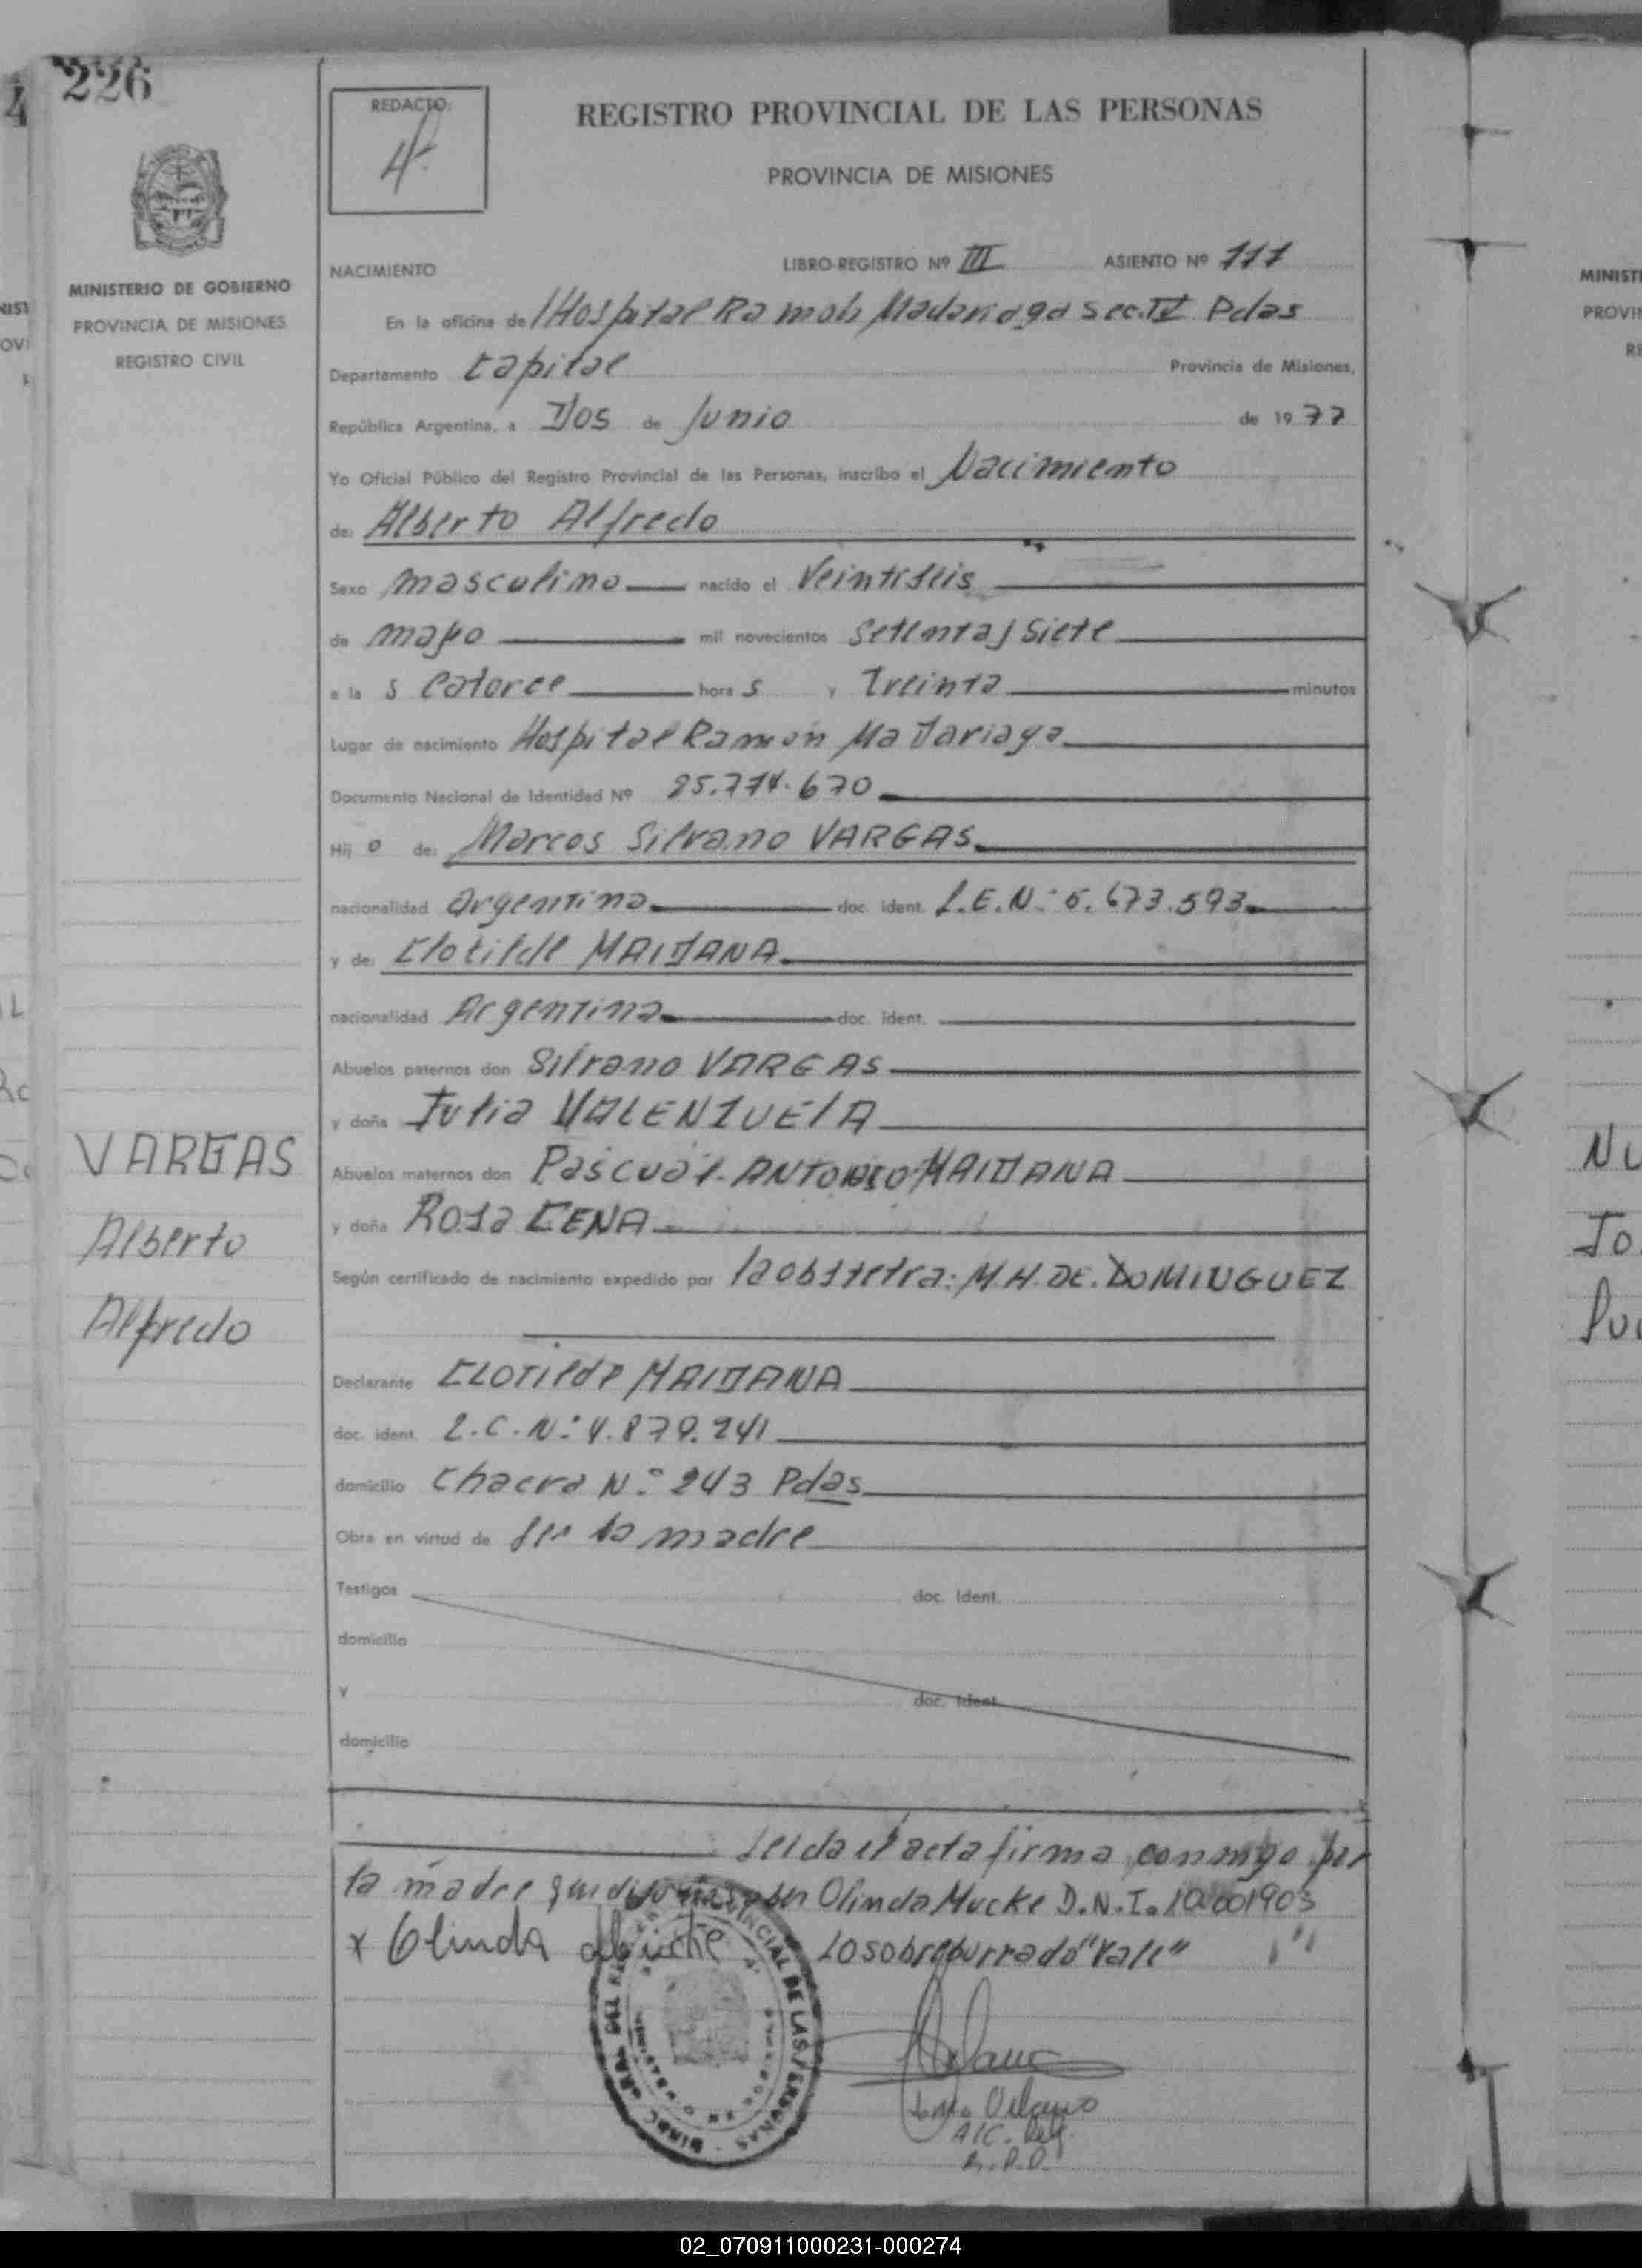 226
REDACTO:
REGISTRO PROVINCIAL DE LAS PERSONAS
PROVINCIA DE MISIONES
MINISTERIO DE GOBIERNO
PROVINCIA DE MISIONES
REGISTRO CIVIL
NACIMIENTO LIBRO-REGISTRO Nº III ASIENTO Nº 111
En la oficina de Hospital Ramon Madariaga Sec. IV Pdas
Departamento Capital Provincia de Misiones,
República Argentina, a Dos de Junio de 1977
Yo Oficial Público del Registro Provincial de las Personas, inscribo el Nacimiento
de: Alberto Alfredo
Sexo masculino nacido el Veintiseis
de mayo mil novecientos setenta y siete
a la s Catorce hora s y Treinta minutos
Lugar de nacimiento Hospital Ramón Madariaga
Documento Nacional de Identidad Nº 25.774.670
Hij o de: Marcos Silvano VARGAS
nacionalidad argentina doc. ident. L.E.N: 5.673.593
y de: Clotilde MAIDANA
nacionalidad Argentina doc. ident.
Abuelos paternos don Silvano VARGAS
y doña Julia VALENZUELA
Abuelos maternos don Pascual ANTONIO MAIDANA
y doña Rosa CENA
Según certificado de nacimiento expedido por la obstetra: M.H. DE. DOMINGUEZ
Declarante CLOTILDE MAIDANA
doc. ident. L.C.N: 4.879.241
domicilio Chacra N.º 243 Pdas
Obra en virtud de ser la madre
Testigos doc. Ident.
domicilio
y doc. Ident.
domicilio
VARGAS
Alberto
Alfredo
Leida el acta firma conmigo por
la madre que dijo no saber Olinda Mucke D.N.I.
x Olinda Mucke Lo sobreborrado "Vale"
R.P.P.
02_070911000231-000274